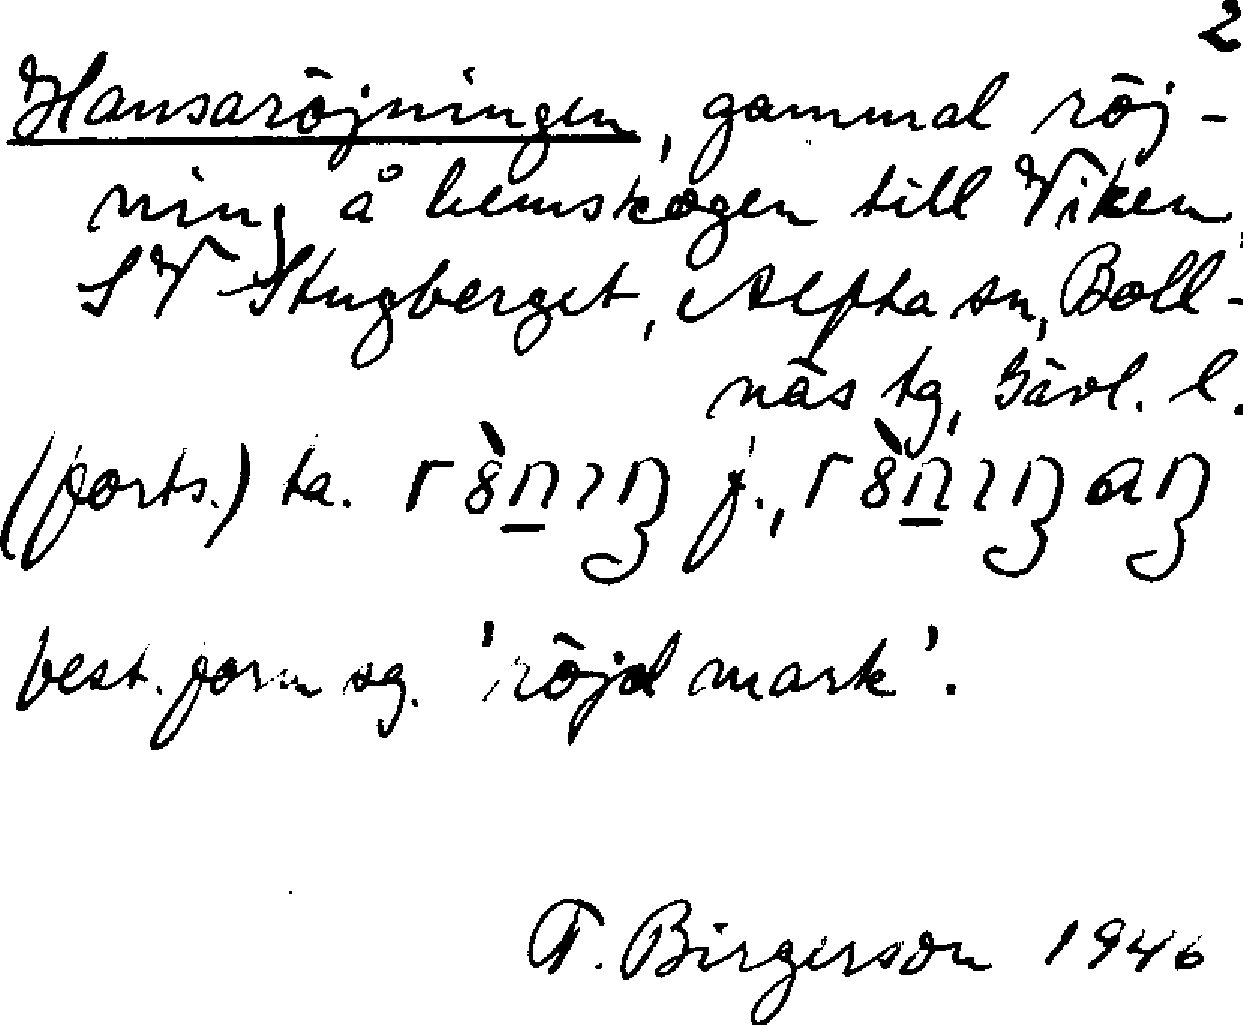 2
Hansaröjningen, gammal röj-
ning å hemskogen till Viken,
SV Stugberget, Alfta sn, Boll-
näs tg, Gävl. l.
(forts.) ta. f.,
best. form sg. 'röjd mark'.
T. Birgerson 1946